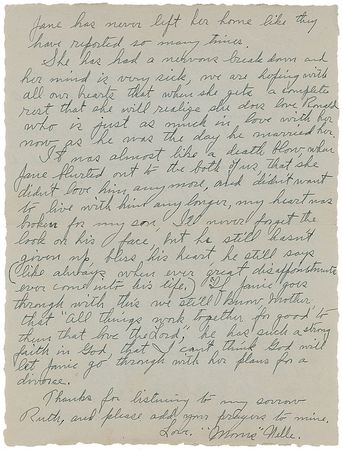 Jane has never left her home like they
have reported so many times.
She has had a nervous break down and
her mind is very sick, we are hoping with
all our hearts that when she gets a complete
rest that she will realize she does love Ronald
who is just as much in love with her
now as he was the day he married her.
It was almost like a death blow when
Jane blurted out to the both of us that she
didn't love him any more, and didn't want
to live with him any longer, my heart was
broken for my son, I'll never forget the
look on his face, but he still hasn't
given up, bless his heart, he still says
(like always when ever great disappointments
ever come into his life,) If Janie goes
through with this we still know, Mother
that "all things work together for good to
them that love the Lord," he has such a strong
faith in God, that I can't think God will
let Janie go through with her plans for a
divorce.
Thanks for listening to my sorrow
Ruth, and please add your prayers to mine.
Love. "Moms" Nelle.